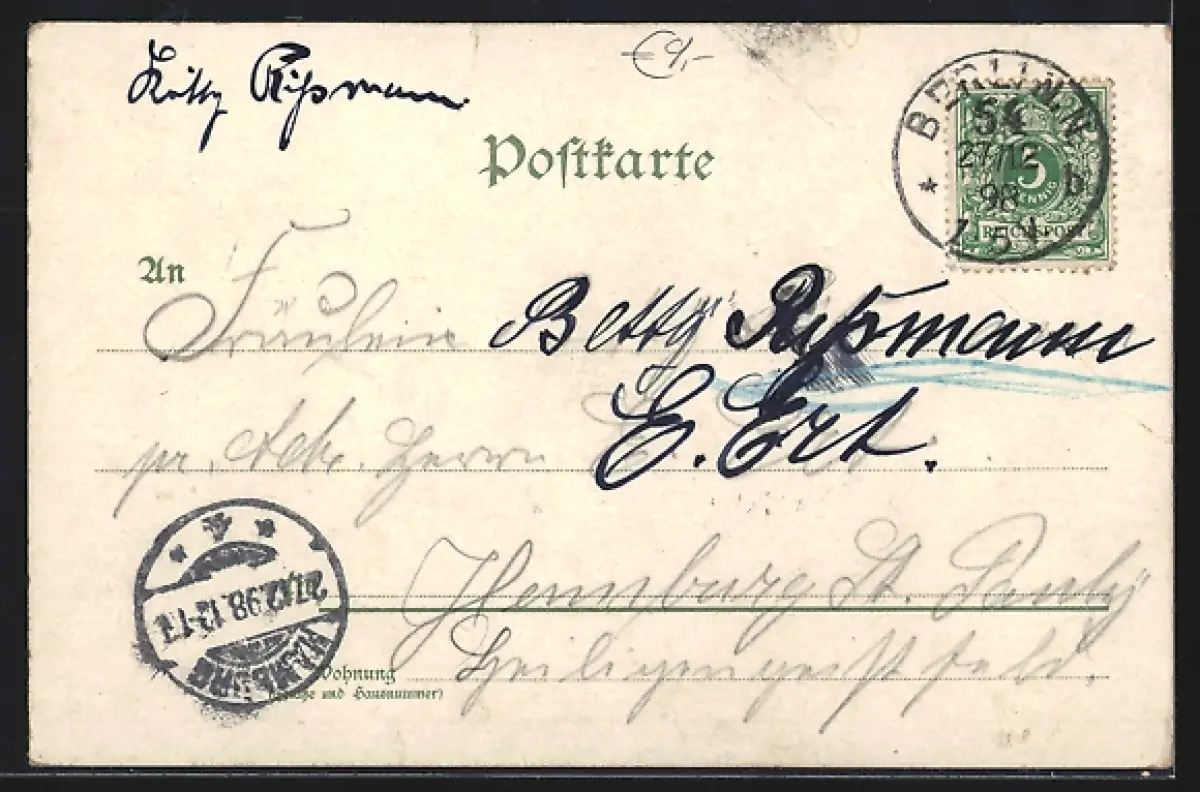 € 9,-
Rißmann
Postkarte
BERLIN N
54
27/12
98
7-8 V
b
5
PFENNIG
REICHSPOST
An Fräulein Betty Rißmann
pr. Adr. Herrn E. Ert.
Hamburg St. Pauli
Heiligengeistfeld.
Wohnung
(Straße und Hausnummer)
HAMBURG
27.12.98.
4